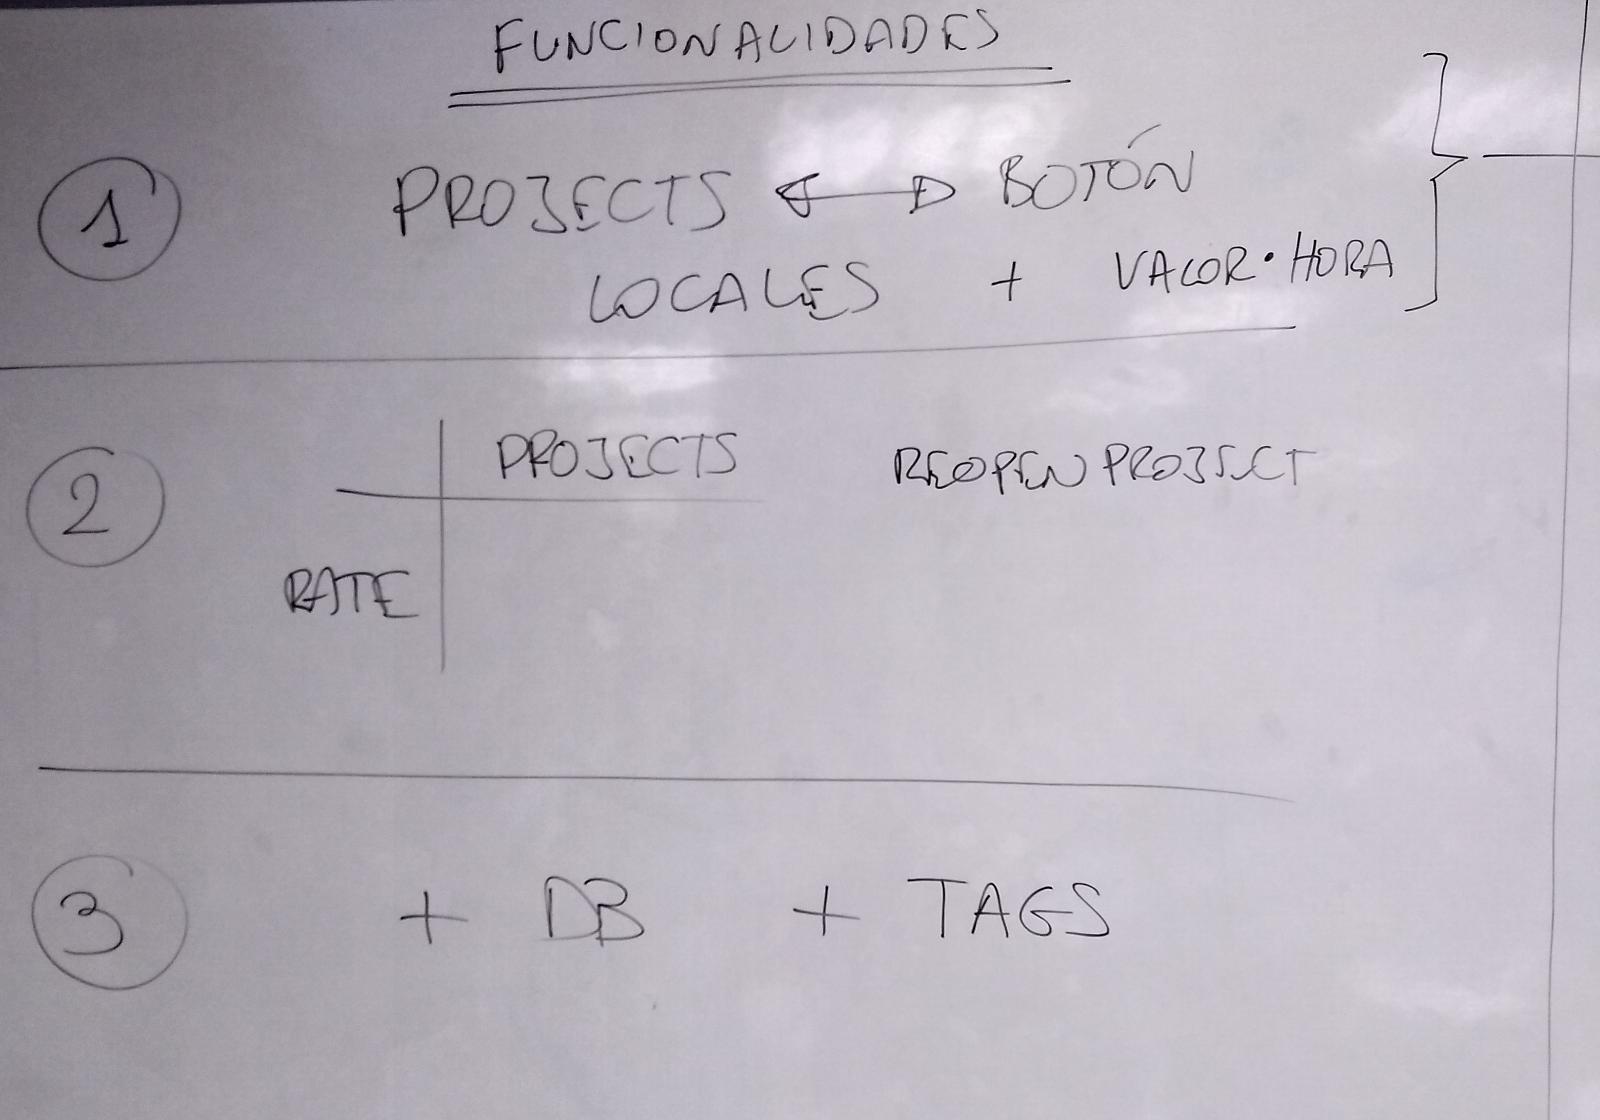 FUNCIONALIDADES
1
PROJECTS ↔ BOTÓN
LOCALES + VALOR·HORA
2
PROJECTS REOPEN PROJECT
RATE
3
+ DB + TAGS